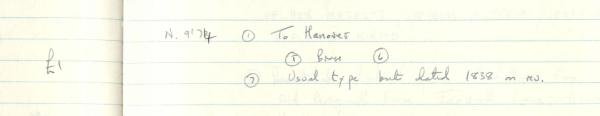 N. 9174 ① To Hanover
£1
⑤ Brass ⑥
⑦ Usual type but dated 1838 on rev.